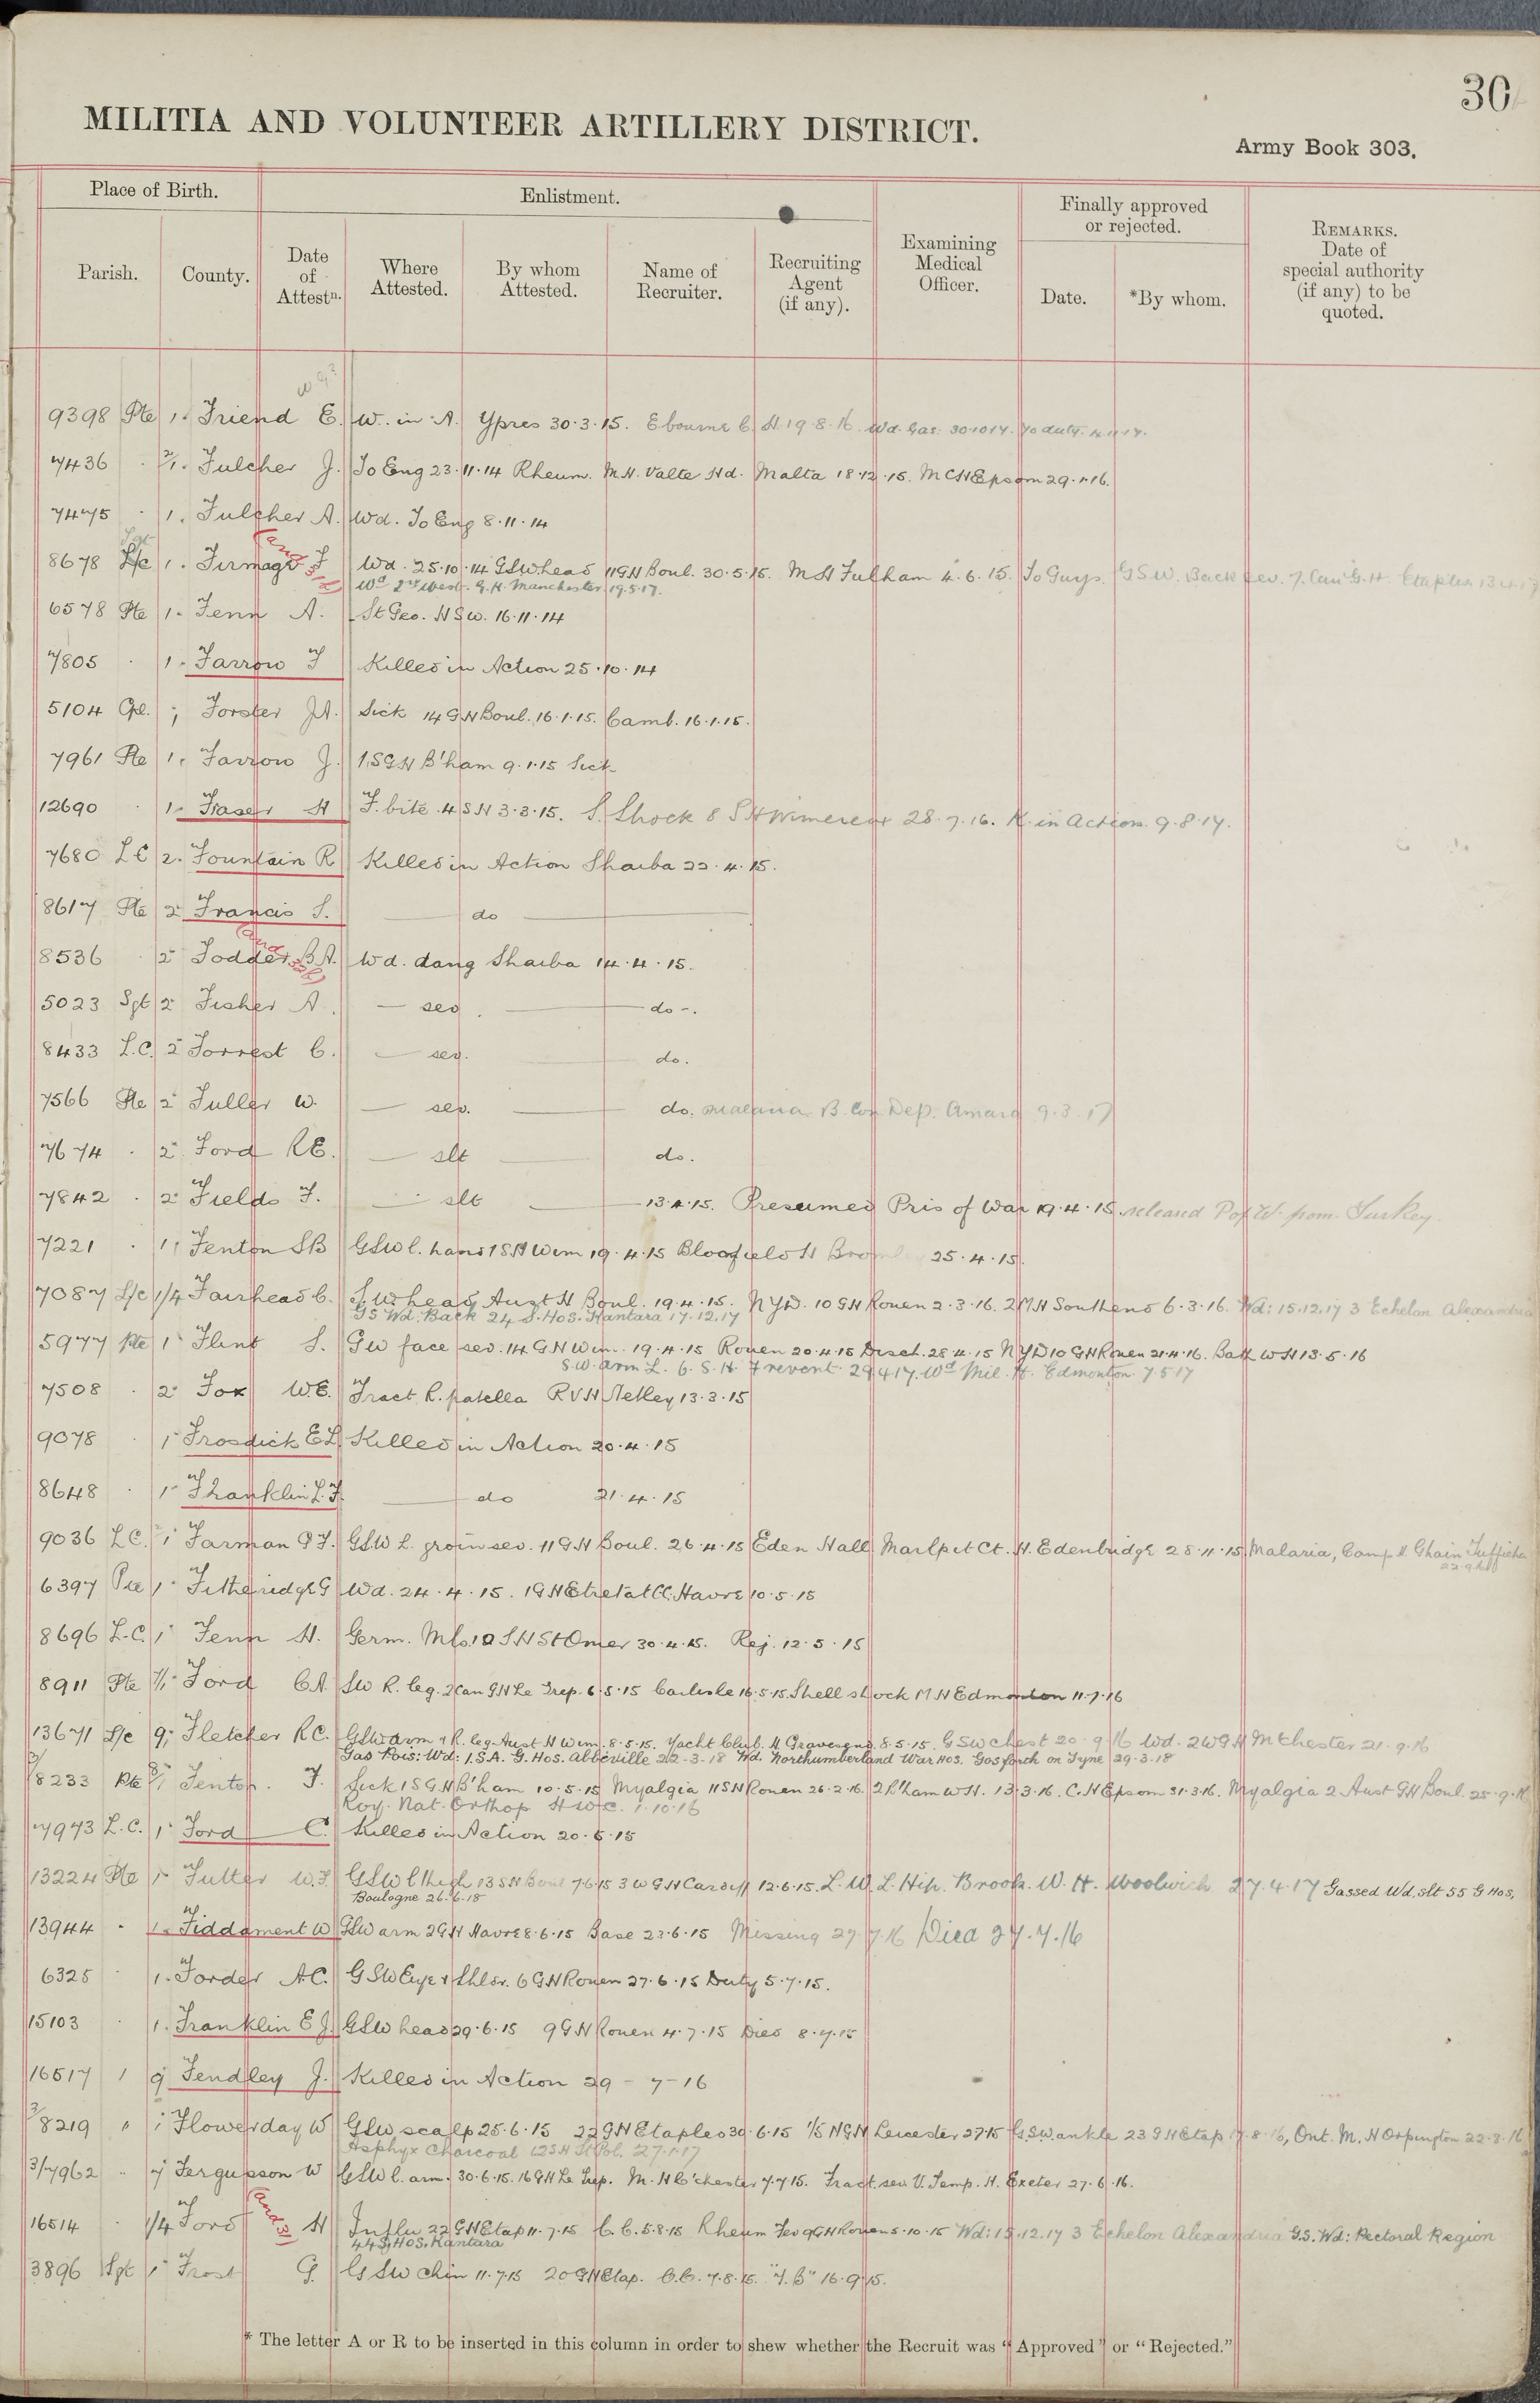 30
MILITIA AND VOLUNTEER ARTILLERY DISTRICT.
Army Book 303.
Place of Birth.
Enlistment.
Finally approved or rejected.
REMARKS. Date of special authority (if any) to be quoted.
Parish.
County.
Date of Attestn.
Where Attested.
By whom Attested.
Name of Recruiter.
Recruiting Agent (if any).
Examining Medical Officer.
Date.
*By whom.
9398 Pte 1. Friend E. W. in A. Ypres 30.3.15. Ebourne C. H. 19.8.16. Wd. Gas. 30.10.17. To duty. 4.11.17.
7436 . 2/1. Fulcher J. To Eng 23.11.14 Rheum. M.H. Valte Hd. Malta 18.12.15. MCH Epsom 29.1.16.
7475 . 1. Fulcher A. Wd. To Eng 8.11.14
Sgt
8678 L/c 1. Firmage F Wd. 25.10.14 GSW head 11GH Boul. 30.5.15. MH Fulham 4.6.15. To Guys. GSW. Back sev. 7. Can. G.H. Etaples 13.4.17
Wd 2nd West. G.H. Manchester 19.5.17.
6578 Pte 1. Fenn A. St Geo. HSW. 16.11.14
7805 . 1. Farrow F Killed in Action 25.10.14
5104 Cpl. ; Forster JA. Sick 14 GH Boul. 16.1.15. Camb. 16.1.15.
7961 Pte 1. Farrow J. 1.SGH B'ham 9.1.15 Sick
12690 . 1. Fraser H F. bite. 4 SH 3.3.15. S. Shock 8 SH Wimereux 28.7.16. K. in Action. 9.8.17.
7680 L C 2. Fountain R Killed in Action Shaiba 22.4.15.
8617 Pte 2 Francis S. do
8536 . 2 Fodder BA. Wd. dang Shaiba 14.4.15.
5023 Sgt 2 Fisher A. sev. do.
8433 L.C. 2 Forrest C. sev. do.
7566 Pte 2 Fuller W. sev. do. Malaria. B. Con Dep. Amara 9.3.17
7674 . 2. Ford RE. slt do.
7842 . 2. Fields F. slt 13.4.15. Presumed Pris of War 19.4.15. released P of W. from Turkey.
7221 . 1; Fenton SB GSW l. hand 1SH Wim 19.4.15 Bloomfield H Bromley 25.4.15.
7087 L/c 1/4 Fairhead C. S.W. head Aust H Boul. 19.4.15. NYD. 10 GH Rouen 2.3.16. 2MH Southend 6.3.16. Wd: 15.12.17 3 Echelon Alexandria
GS Wd. Back 24 S. Hos. Kantara 17.12.17
5977 Pte 1 Flint S. GW face sev. 14 GH Wim. 19.4.15 Rouen 20.4.15 Disch. 28.4.15 NYD 10 GH Rouen 21.4.16. Bath WH 13.5.16
S.W. arm L. 6. S.H. Frevent 29.4.17. Wd Mil. H. Edmonton. 7.5.17
7508 . 2 Fox W.E. Fract. R. patella RVH Netley 13.3.15
9078 . 1 Frosdick EL Killed in Action 20.4.15
8648 . 1 Franklin L.F. do 21.4.15
9036 L C. 1 Farman GF. GSW L. groin sev. 11 GH Boul. 26.4.15 Eden Hall Marlpit Ct. H. Edenbridge 28.4.15, Malaria, Camp H. Ghain Tuffieha
6397 Pte 1 Fitheridge G Wd. 24.4.15. 1GH Etretat CC. Havre 10.5.15
8696 L.C. 1 Fenn H. Germ. Mls. 10 SH St Omer 30.4.15. Rej. 12.5.15
8911 Pte 7/1 Ford CA. SW R. leg. 2 Can GH Le Trep. 6.5.15 Carlisle 16.5.15. Shell shock MH Edmonton 11.7.16
13671 L/c 9; Fletcher RC. GSW arm & R. leg. Aust H Wim. 8.5.15. Yacht Club. H. Gravesend 8.5.15. GSW chest 20.9.16 Wd. 2WGH Mchester 21.9.16
Gas Pois: Wd: 1.S.A. G. Hos. Abbeville 22-3-18 Wd. Northumberland War Hos. Gosforth on Tyne 29-3-18
3/8233 Pte 8/1 Fenton. F. Sick 1SGH B'ham 10.5.15 Myalgia 11SH Rouen 26.2.16. 2 B'ham WH. 13.3.16. C.H Epsom 31.3.16. Myalgia 2 Aust GH Boul. 25.9.16
Roy. Nat. Orthop H W.C. 1.10.16
7973 L.C. 1 Ford C. Killed in Action 20.5.15
13224 Pte 1 Futter W.F. GSW l thigh 13 SH Boul 7.6.15 3 WGH Cardiff 12.6.15. L.W. L. Hip. Brook. W.H. Woolwich 27.4.17 Gassed Wd, slt 55 G Hos,
Boulogne 26.6.18
13944 . 1. Fiddament W GSW arm 2GH Havre 8.6.15 Base 23.6.15 Missing 27.7.16 Died 27.7.16
6325 . 1. Forder A.C. GSW Eye & Shldr. 6 GH Rouen 27.6.15 Duty 5.7.15.
15103 . 1. Franklin E J. GSW head 29.6.15 9 GH Rouen 4.7.15 Died 8.7.15
16517 1 9 Fendley J. Killed in Action 29-7-16
3/8219 " 1 Flowerday W GSW scalp 25.6.15 22 GH Etaples 30.6.15 1/5 NGH Leicester 2.7.15 G.S.W. ankle 23 GH Etap 17.8.16, Ont. M. H Orpington 22.8.16
Asphyx Charcoal 12 SH St Pol. 27.1.17
3/7962 .. 7 Fergusson W GSW l. arm. 30.6.15. 16 GH Le Trep. M. H C'chester 7.7.15. Fract. sev V. Temp. H. Exeter 27.6.16.
16514 . 1/4 Ford H Influ 22 GH Etap 11.7.15 C.C. 5.8.15 Rheum Fev 9GH Rouen 5.10.15 Wd: 15.12.17 3 Echelon Alexandria G.S. Wd: Pectoral Region
44 S. Hos. Kantara
3896 Sgt 1 Frost G. GSW chin 11.7.15 20 GH Etap. C.C. 7.8.15. "T.B" 16.9.15.
* The letter A or R to be inserted in this column in order to shew whether the Recruit was "Approved" or "Rejected."